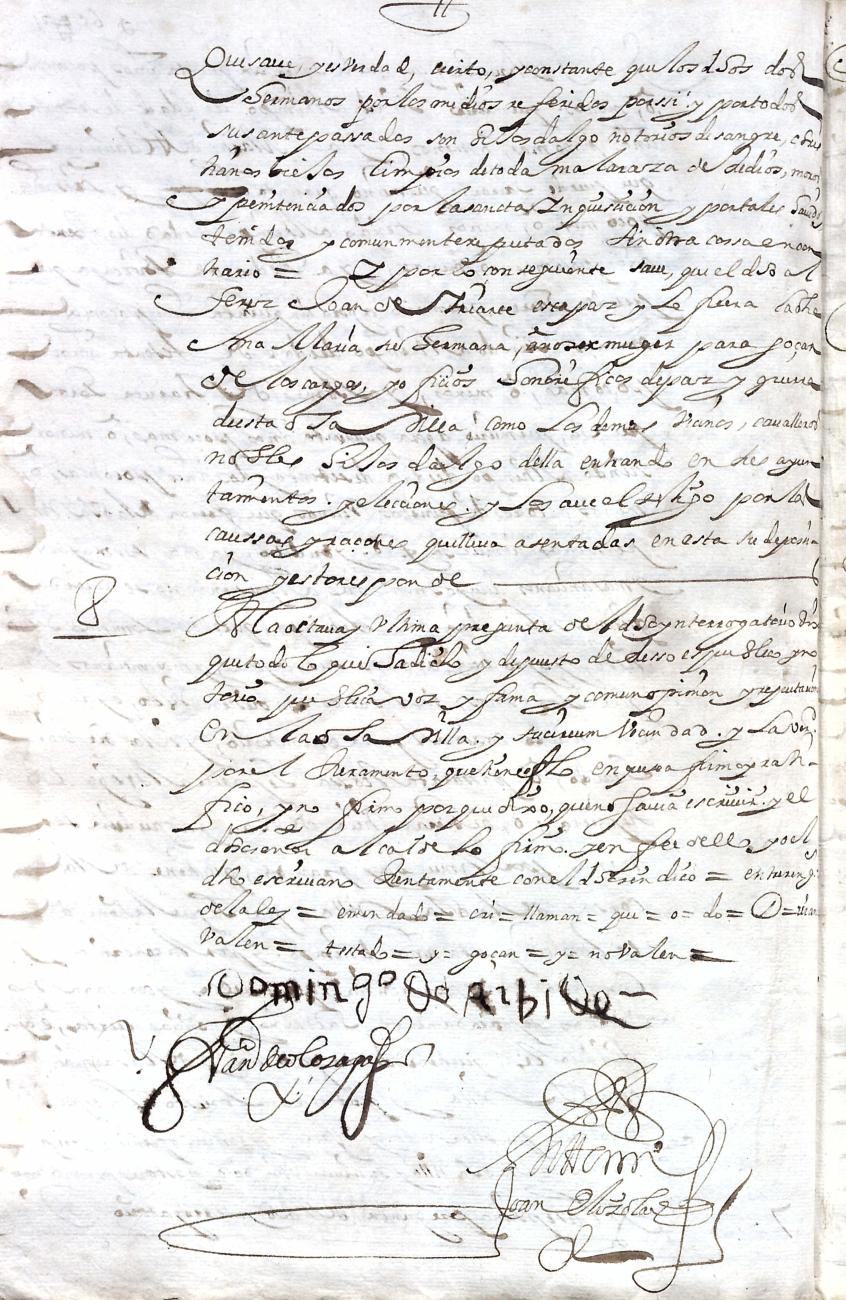 que saue, y es verdad, cierto, y constante que los dhos dos
hermanos por los medios referidos por ssi y por todos
sus antepassados son hijosdalgo notorios de sangre, chris
tianos viejos limpios de toda mala raza de Judios, moros
y penitenciados por la sancta Inquisicion y por tales hauidos
tenidos y comunmente reputados sin otra cossa en con
trario = Y por lo consiguiente saue, que el dho al
ferez Joan de es capaz y lo fuera la dha
Ana Maria su hermana, a no ser muger para goçar
de los cargos, y officios honorificos de paz y guerra
desta dha Villa como los demas vecinos, caualleros
nobles hijosdalgo della entrando en sus ayun
tamientos. y elecciones. y lo saue el testigo por las
caussas y raçones que lleua asentadas en esta su deposi
cion y esto responde
8 A la octaua y vltima pregunta del dho ynterrogatorio dixo
que todo lo que ha dicho y depuesto de desso es publico y no
torio, publica voz y fama y comun opinion y reputacion
en la dha Villa. y su circum vecindad. y la verd
por el Juramento, que tiene fho en que se afirmo y rati
fico, y no firmo porque dixo, que no sauia escriuir. y el
dho señor alcalde lo firmo. y en fee dello yo el
dho escriuano Juntamente con el dho sindico = entre reng
de la ley = emendado = cri = llaman = que = o = do =
valen = testado = y = goçan = y = no valen =
Domingo de arbide
Ante mi
Joan